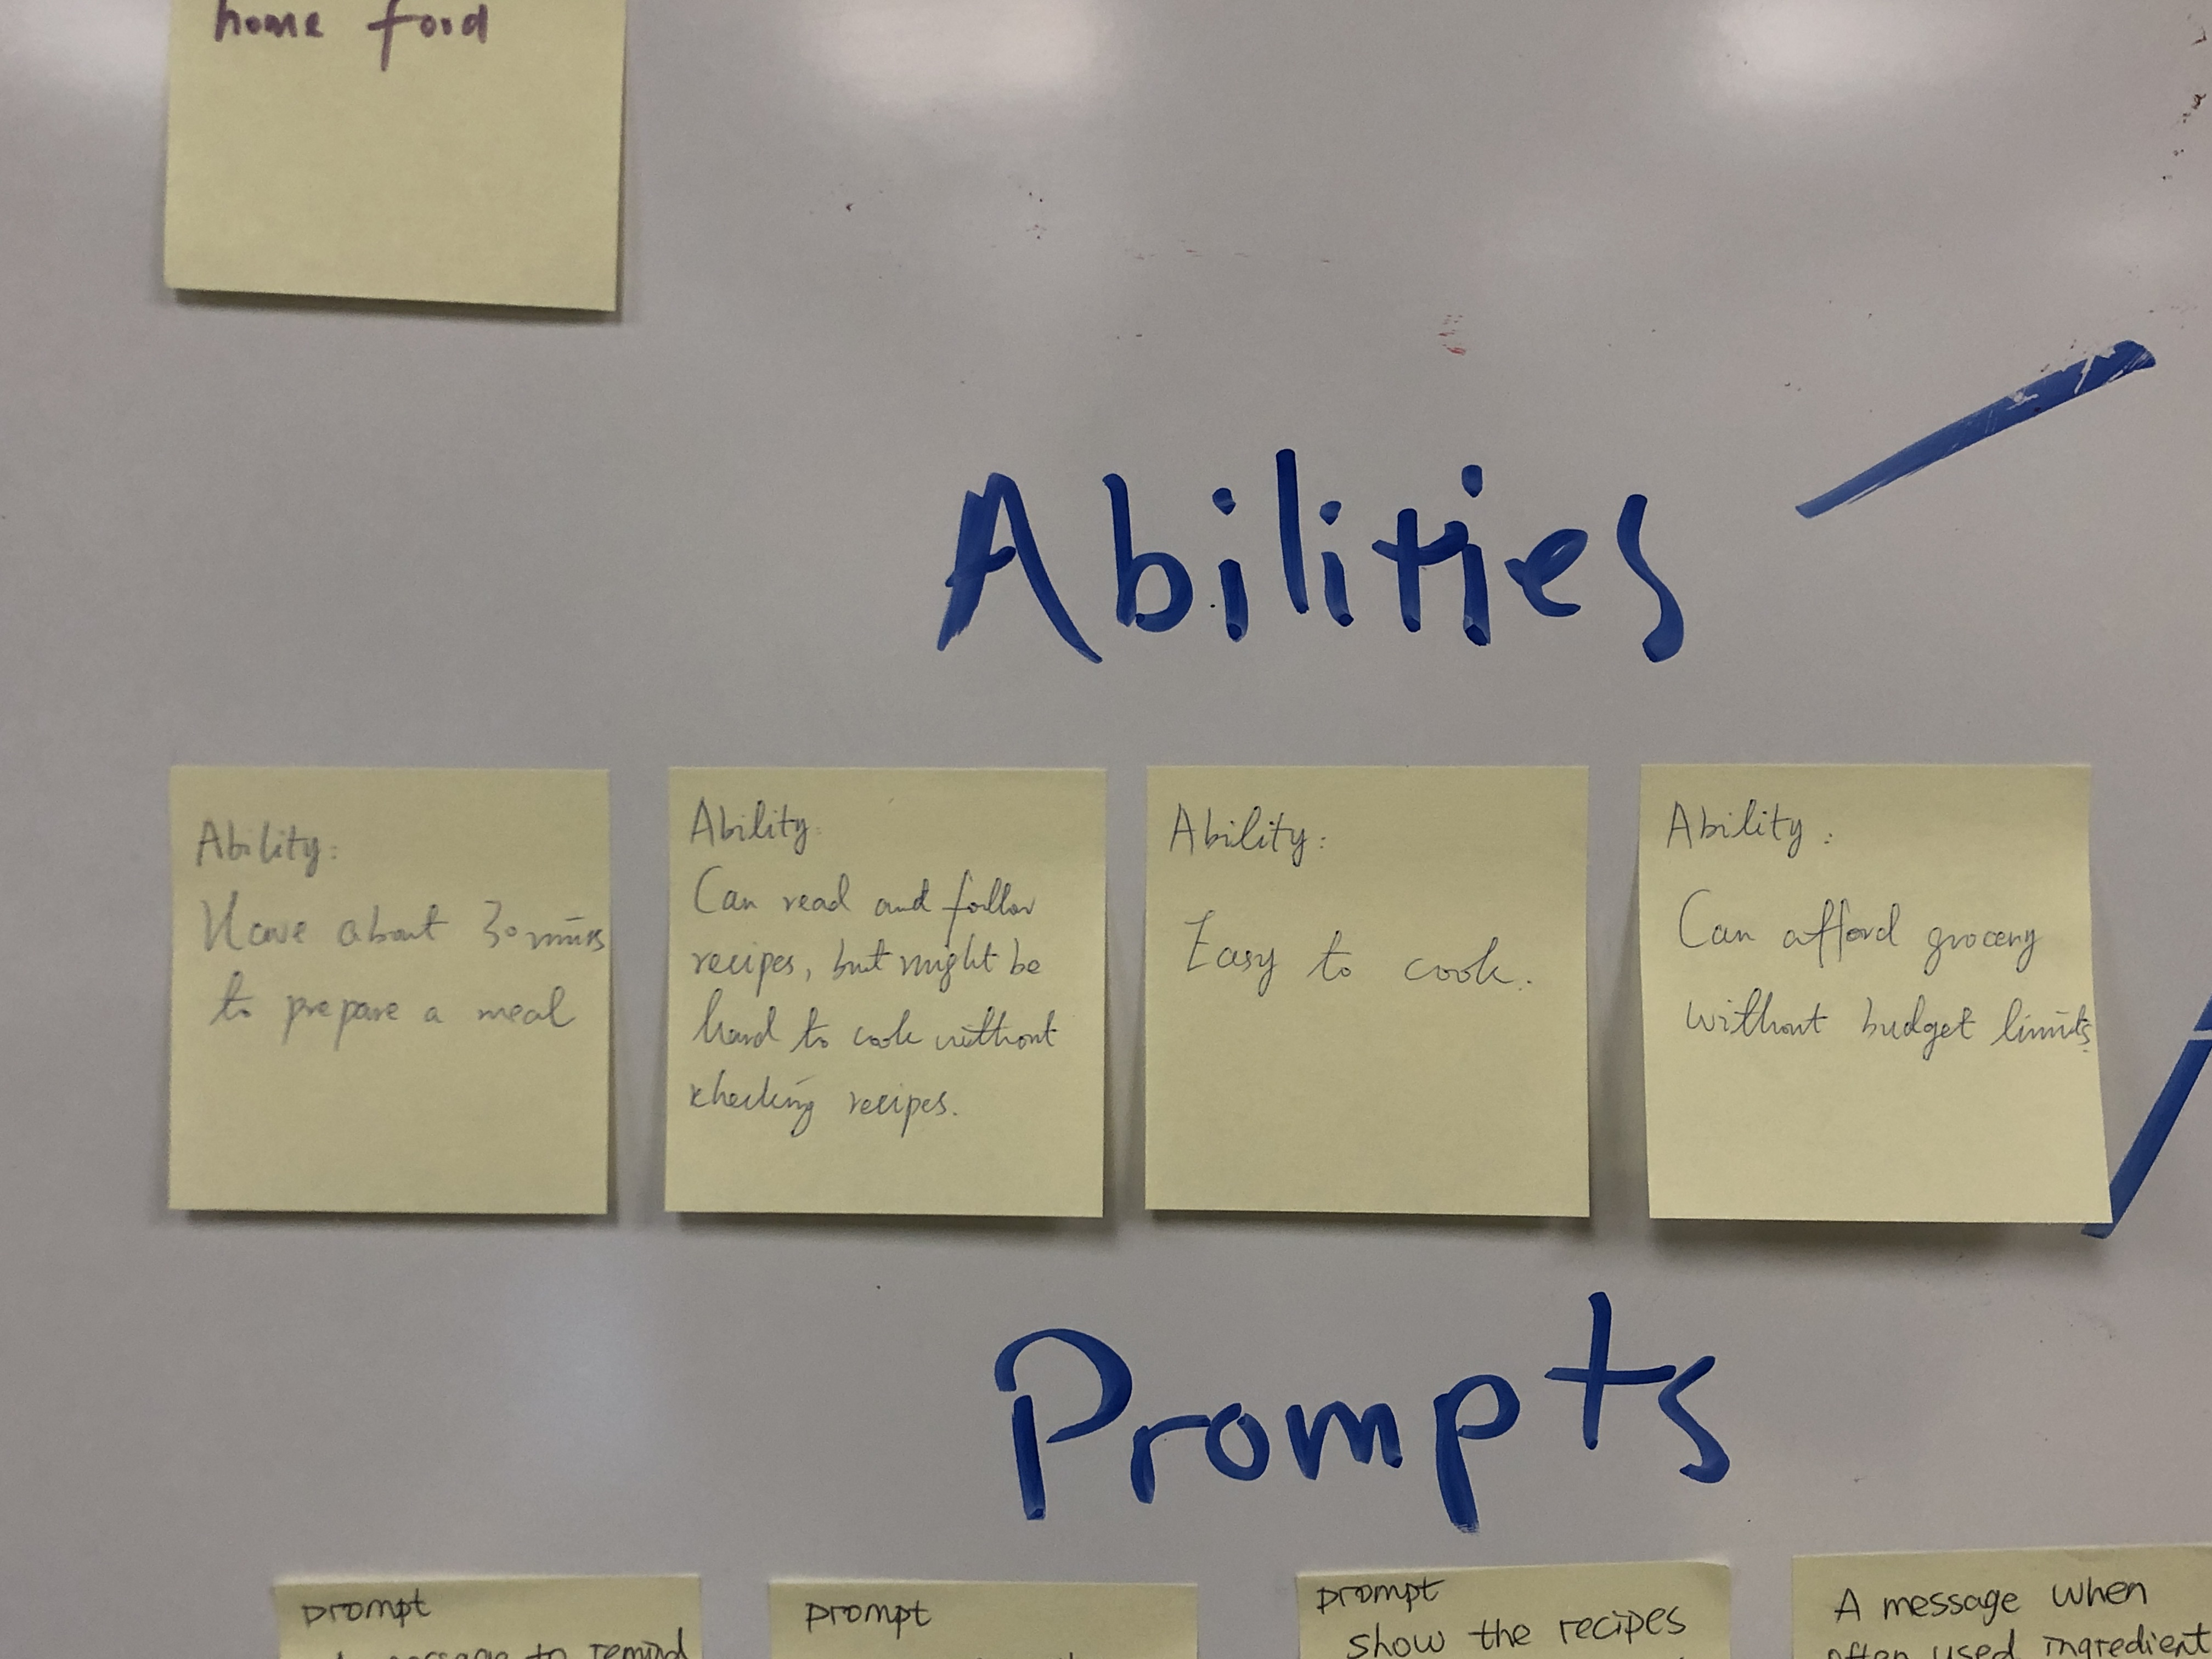 home food
Abilities
Ability:
Have about 30 mins
to prepare a meal
Ability:
Can read and follow
recipes, but might be
hard to cook without
checking recipes.
Ability:
Easy to cook.
Ability:
Can afford grocery
without budget limits.
Prompts
prompt
message to remind
prompt
prompt
show the recipes
A message when
often used ingredient